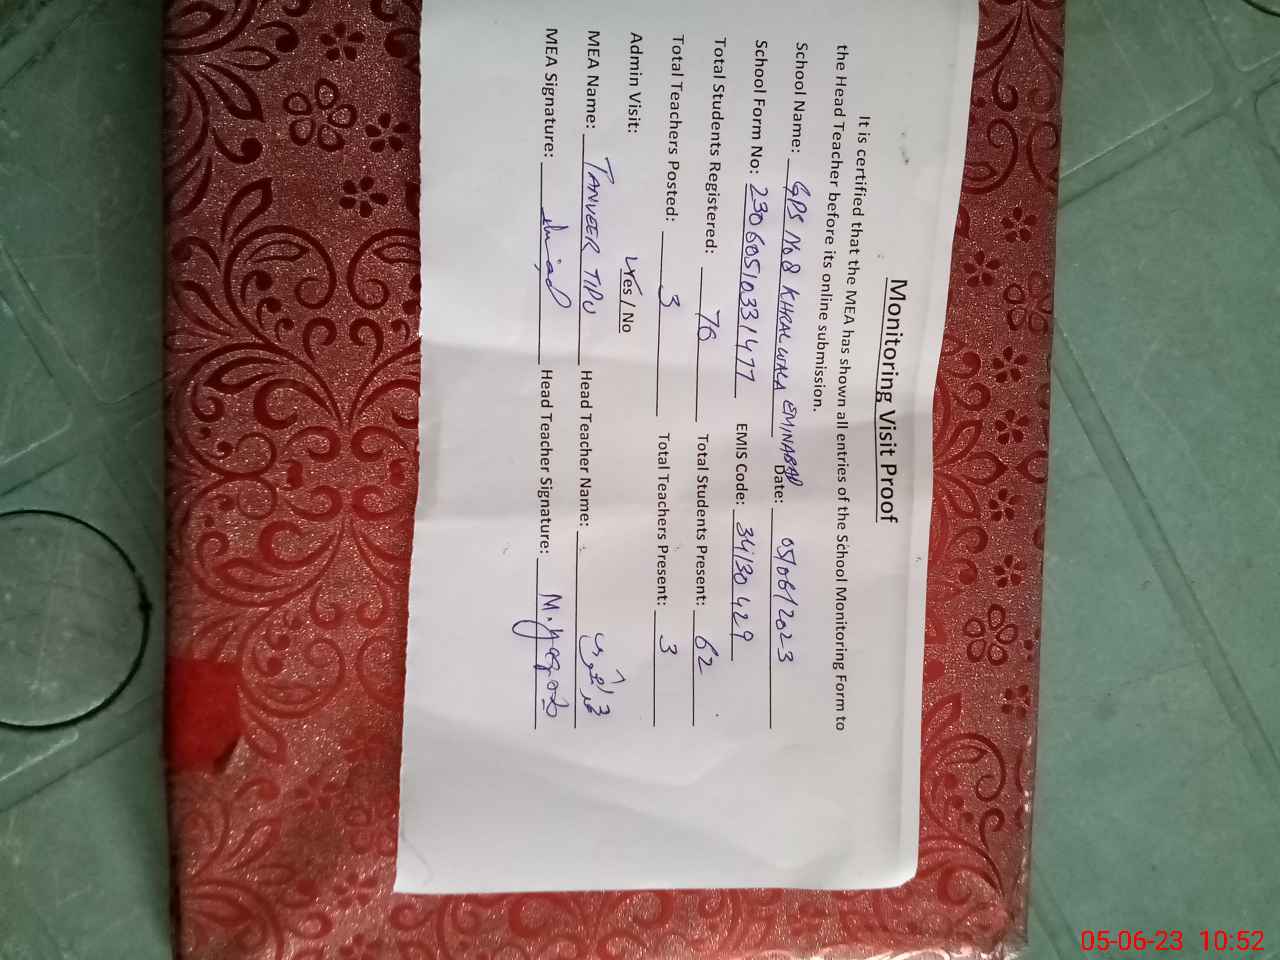 Monitoring Visit Proof
It is certified that the MEA has shown all entries of the School Monitoring Form to
the Head Teacher before its online submission.
School Name: GPS No 8 KHRAL WALA EMINABAD Date: 05/06/2023
School Form No: 23060510331477 EMIS Code: 34130429
Total Students Registered: 76 Total Students Present: 62
Total Teachers Posted: 3 Total Teachers Present: 3
Admin Visit: Yes / No
MEA Name: TANVEER TIPU Head Teacher Name:
MEA Signature: Head Teacher Signature: M.
05-06-23 10:52